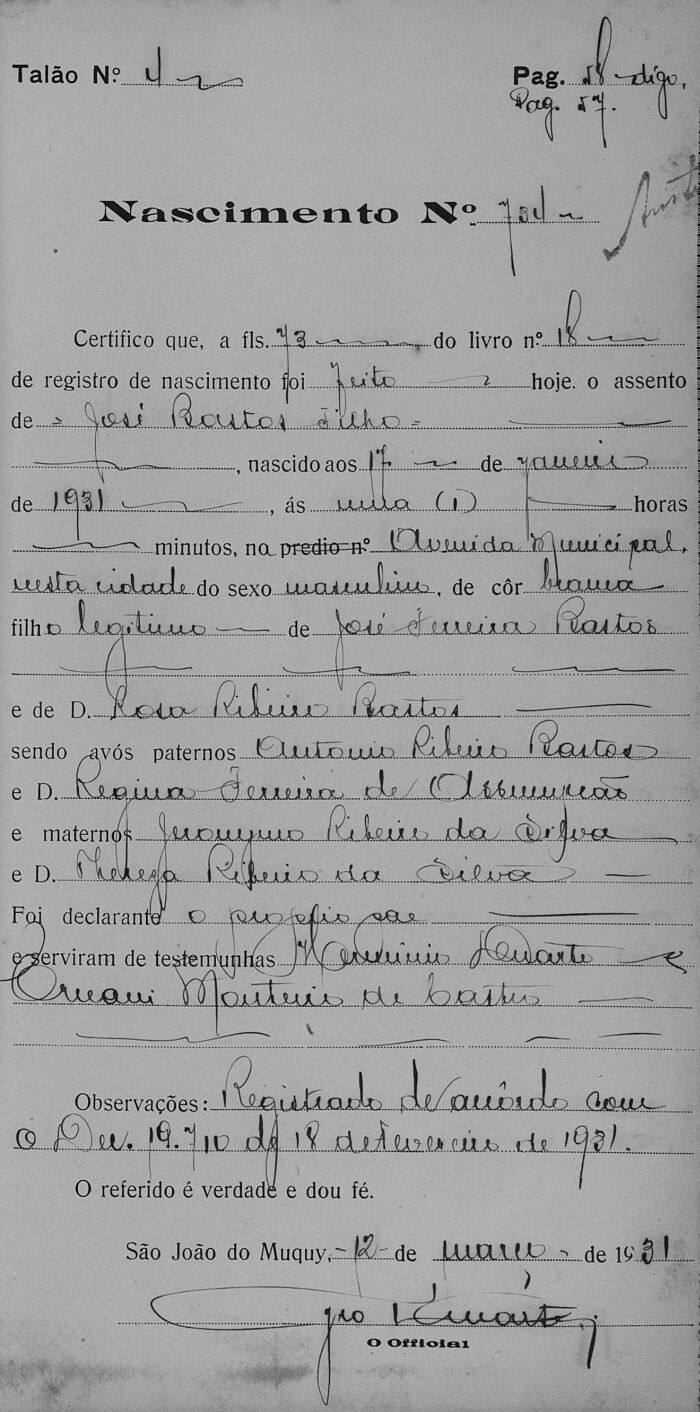 Talão N.º 4
Pag. 58 digo,
Pag. 57.
Nascimento Nº 734
Certifico que, a fls. 73 do livro nº 18
de registro de nascimento foi feito hoje, o assento
de = José Bastos Filho =
, nascido aos 17 de janeiro
de 1931, ás uma (1) horas
minutos, na predio nº Avenida Municipal,
nesta cidade do sexo masculino, de côr branca
filho legitimo de José Ferreira Bastos
e de D. Rosa Ribeiro Bastos
sendo avós paternos Antonio Ribeiro Bastos
e D. Regina Ferreira de Assumpção
e maternos Jeronymo Ribeiro da Silva
e D. Thereza Ribeiro da Silva
Foi declarante o proprio pae
e serviram de testemunhas Herminio Duarte e
Ernani Monteiro de Castro
Observações: Registrado de accôrdo com
o Dec. 19.710 de 18 de fevereiro de 1931.
O referido é verdade e dou fé.
São João do Muquy, -12- de março - de 1931
Duarte
O Official